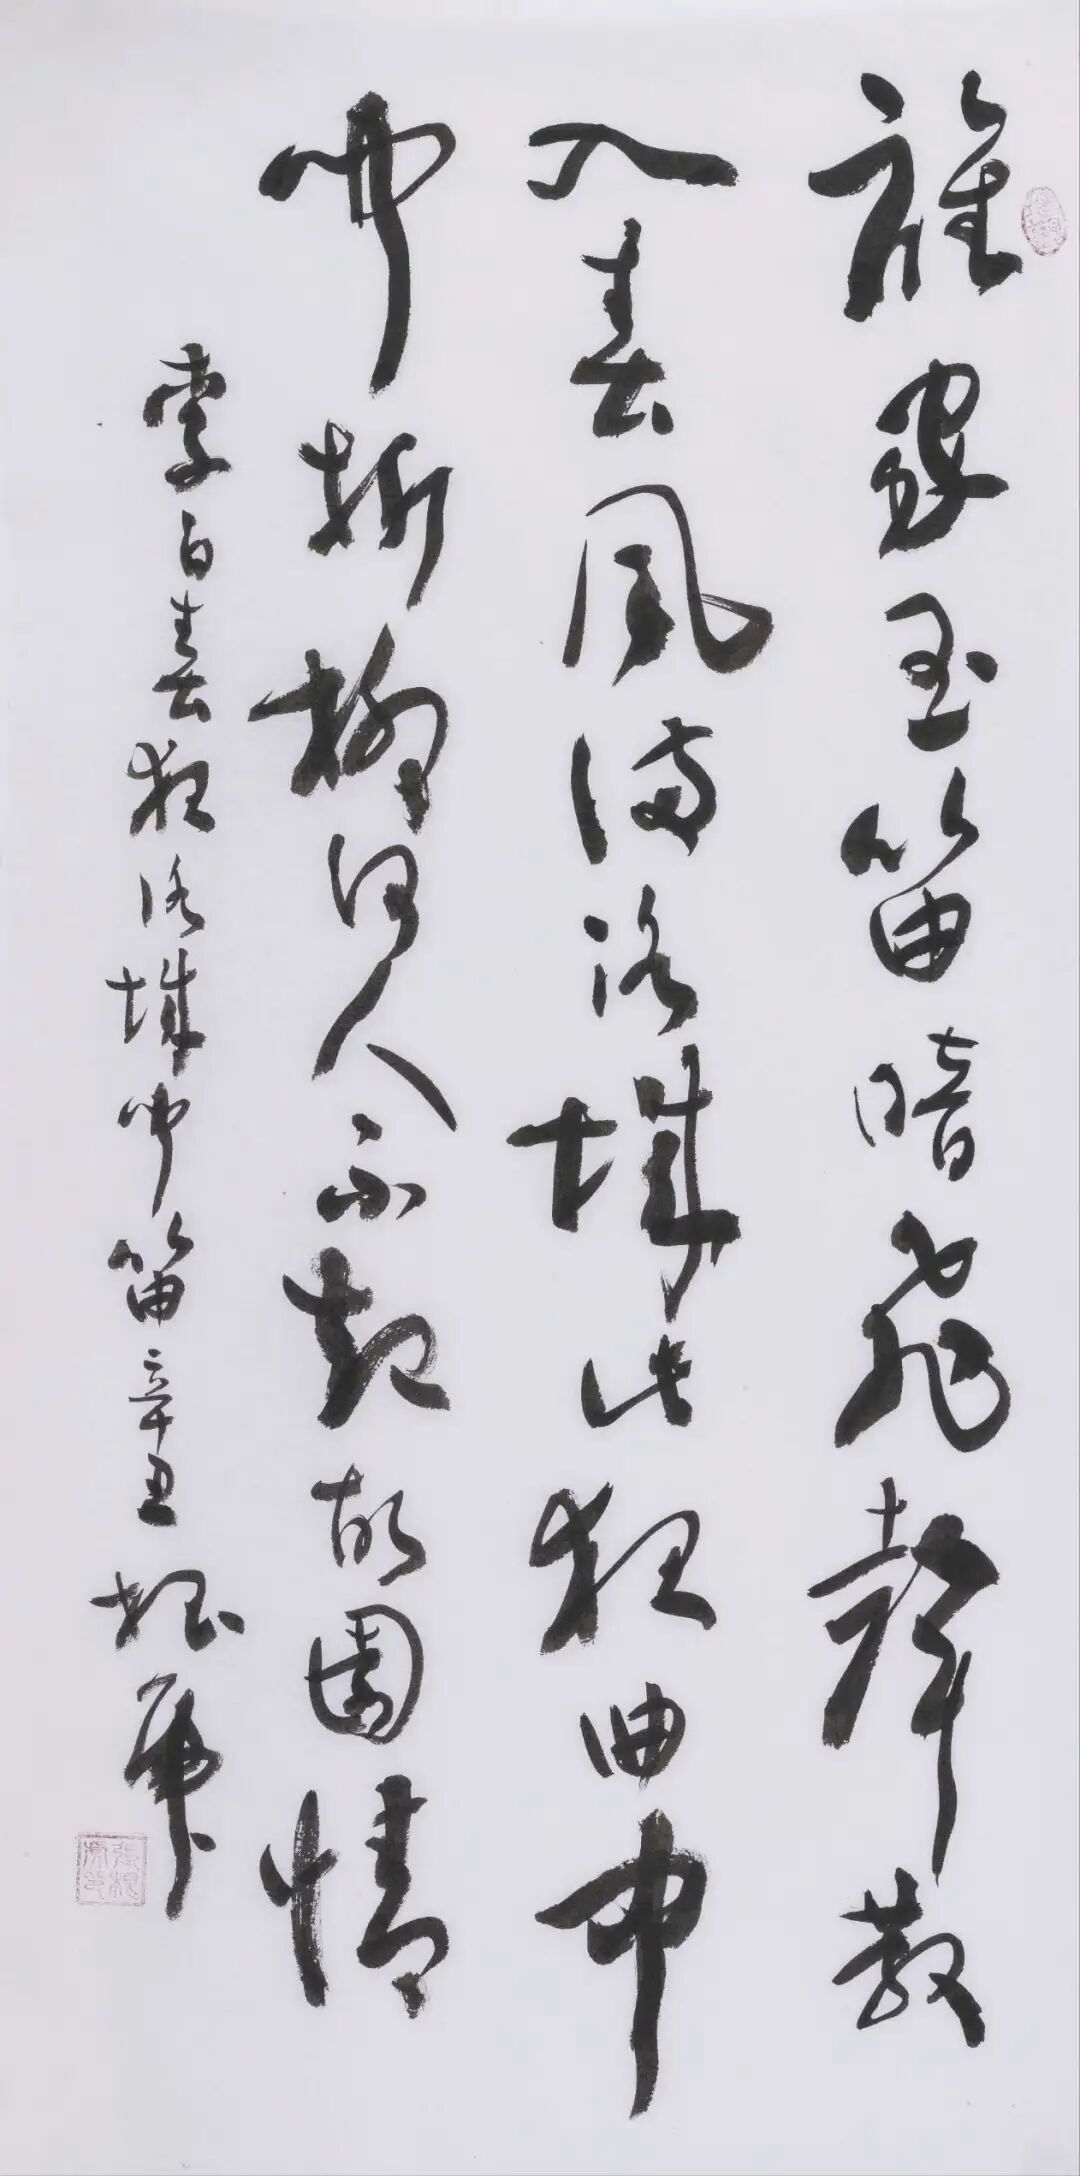 誰家玉笛暗飛聲散
入春風滿洛城此夜曲中
聞折柳何人不起故園情
李白春夜洛城聞笛辛丑根虎